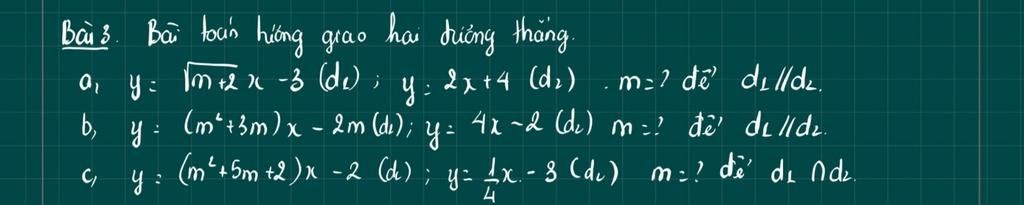 Bài 3. Bài toán tương giao hai đường thẳng.
a, y = √(m+2) x - 3 (d₁) ; y = 2x + 4 (d₂) . m = ? để d₁ // d₂.
b, y = (m² + 3m) x - 2m (d₁) ; y = 4x - 2 (d₂) m = ? để d₁ // d₂.
c, y = (m² + 5m + 2) x - 2 (d₁) ; y = 1/4 x - 3 (d₂) m = ? để d₁ ∩ d₂.